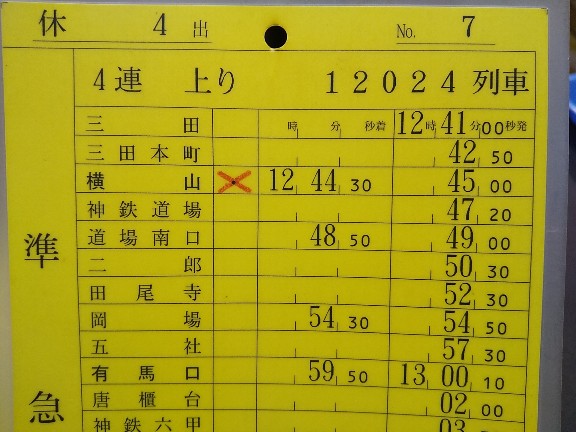 休 4 出 No. 7
4連 上り 12024列車
準急
三田 時 分 秒着 12時41分00秒発
三田本町 42 50
横山 × 12 44 30 45 00
神鉄道場 47 20
道場南口 48 50 49 00
二郎 50 30
田尾寺 52 30
岡場 54 30 54 50
五社 57 30
有馬口 59 50 13 00 10
唐櫃台 02 00
神鉄六甲 03